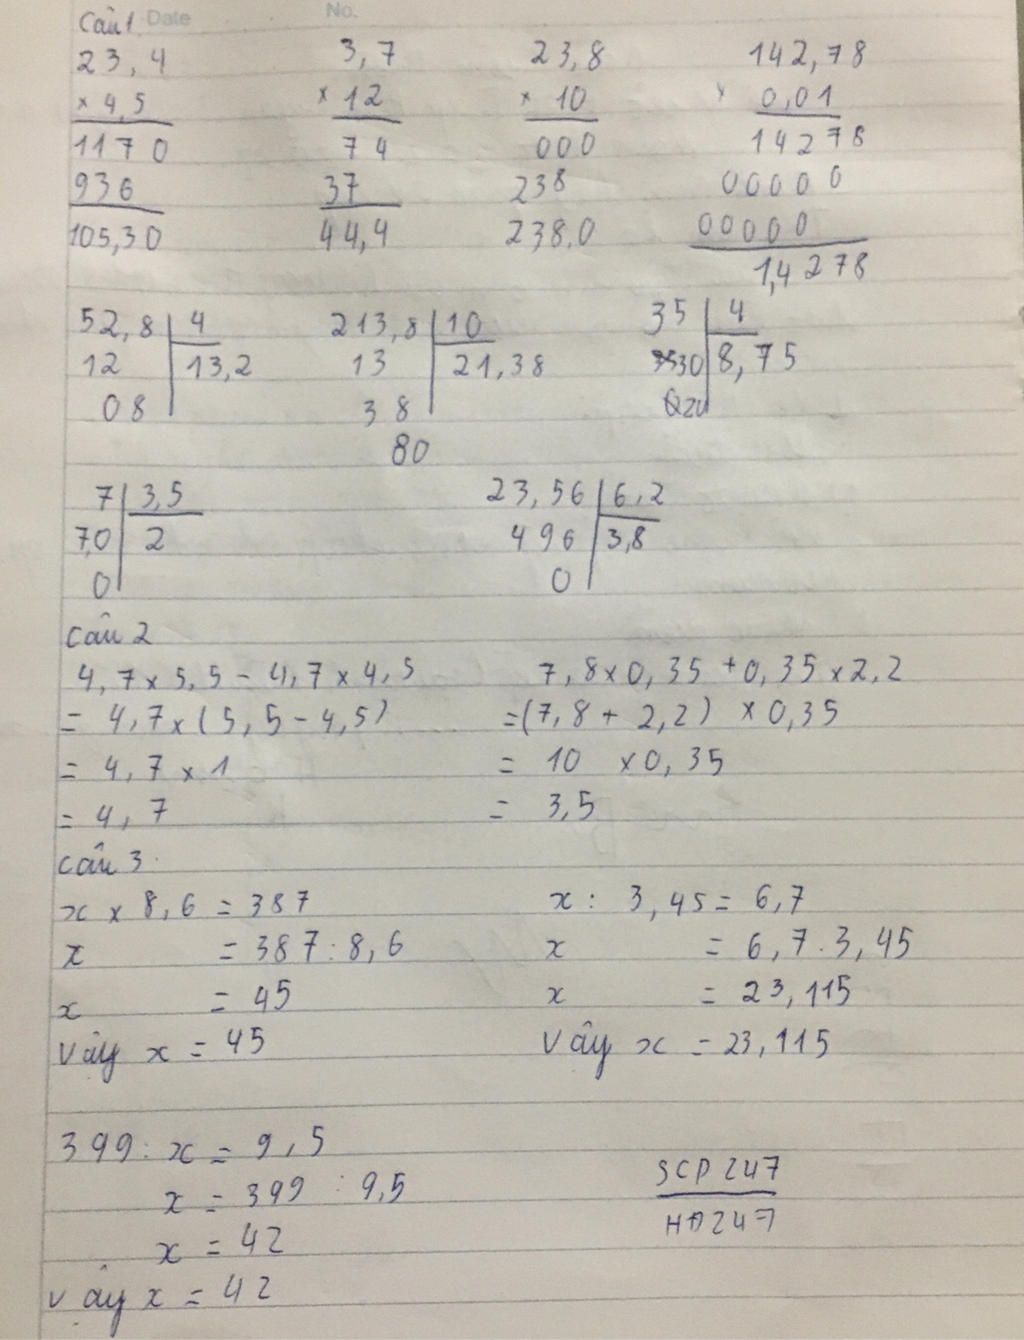 Câu 1. Date No.
23,4 3,7 23,8 142,78
× 4,5 × 12 × 10 × 0,01
1170 74 000 14278
936 37 238 00000
105,30 44,4 238,0 00000
1,4278
52,8 4 213,8 10 35 4
12 13,2 13 21,38 30 8,75
08 38 20
80
7 3,5 23,56 6,2
7,0 2 496 3,8
0 0
Câu 2
4,7 × 5,5 - 4,7 × 4,5 7,8 × 0,35 + 0,35 × 2,2
= 4,7 × (5,5 - 4,5) = (7,8 + 2,2) × 0,35
= 4,7 × 1 = 10 × 0,35
= 4,7 = 3,5
Câu 3.
x × 8,6 = 387 x : 3,45 = 6,7
x = 387 : 8,6 x = 6,7 . 3,45
x = 45 x = 23,115
Vậy x = 45 Vây x = 23,115
399 : x = 9,5
x = 399 : 9,5
x = 42
Vây x = 42
SCP 247
HD247